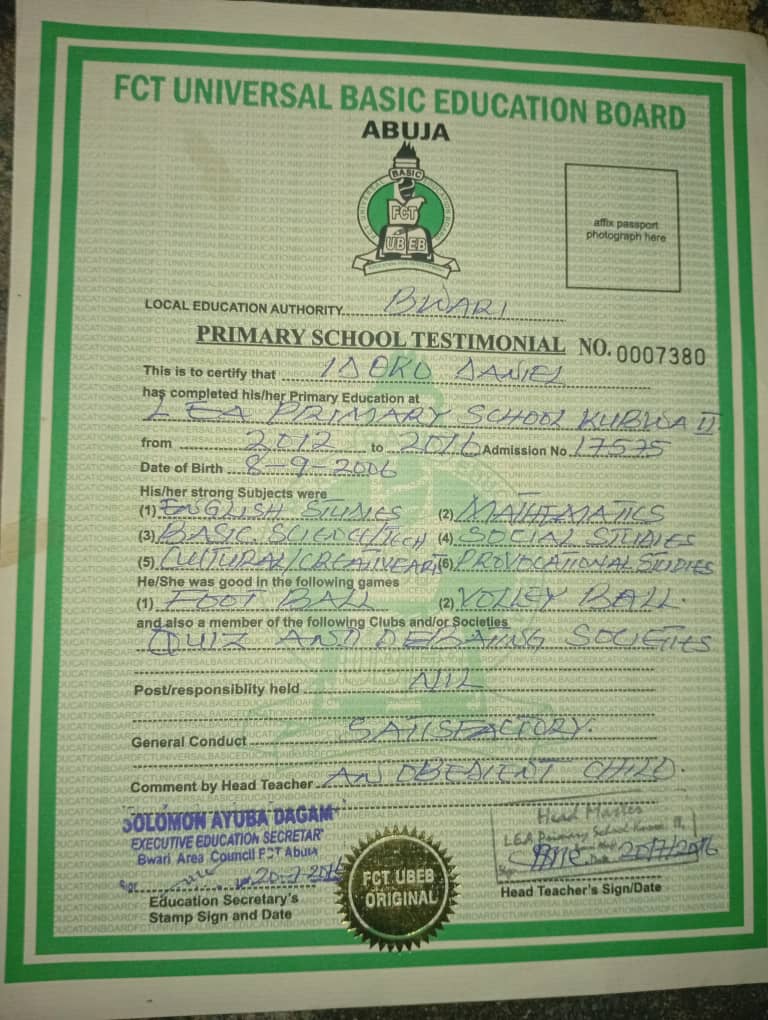 FCT UNIVERSAL BASIC EDUCATION BOARD
ABUJA
UNIVERSAL BASIC EDUCATION
FCT
UBEB
affix passport
photograph here
LOCAL EDUCATION AUTHORITY BWARI
PRIMARY SCHOOL TESTIMONIAL NO. 0007380
This is to certify that IDOKO DANIEL
has completed his/her Primary Education at
LEA PRIMARY SCHOOL KUBWA II
from 2012 to 2016 Admission No 17575
Date of Birth 8-9-2006
His/her strong Subjects were
(1) ENGLISH STUDIES (2) MATHEMATICS
(3) BASIC SCIENCE/TECH (4) SOCIAL STUDIES
(5) CULTURAL/CREATIVE ARTS (6) PROVOCATIONAL STUDIES
He/She was good in the following games
(1) FOOT BALL (2) VOLLEY BALL.
and also a member of the following Clubs and/or Societies
QUIZ AND DEBATING SOCIETIES
Post/responsiblity held NIL
General Conduct SATISFACTORY.
Comment by Head Teacher AN OBEDIENT CHILD.
SOLOMON AYUBA DAGAM
EXECUTIVE EDUCATION SECRETAR
Bwari Area Council FCT Abuja
Sign 20-7-2016
Education Secretary's
Stamp Sign and Date
FCT UBEB
ORIGINAL
Head Master
LEA Primary School II,
Sign Date 20/7/2016
Head Teacher's Sign/Date